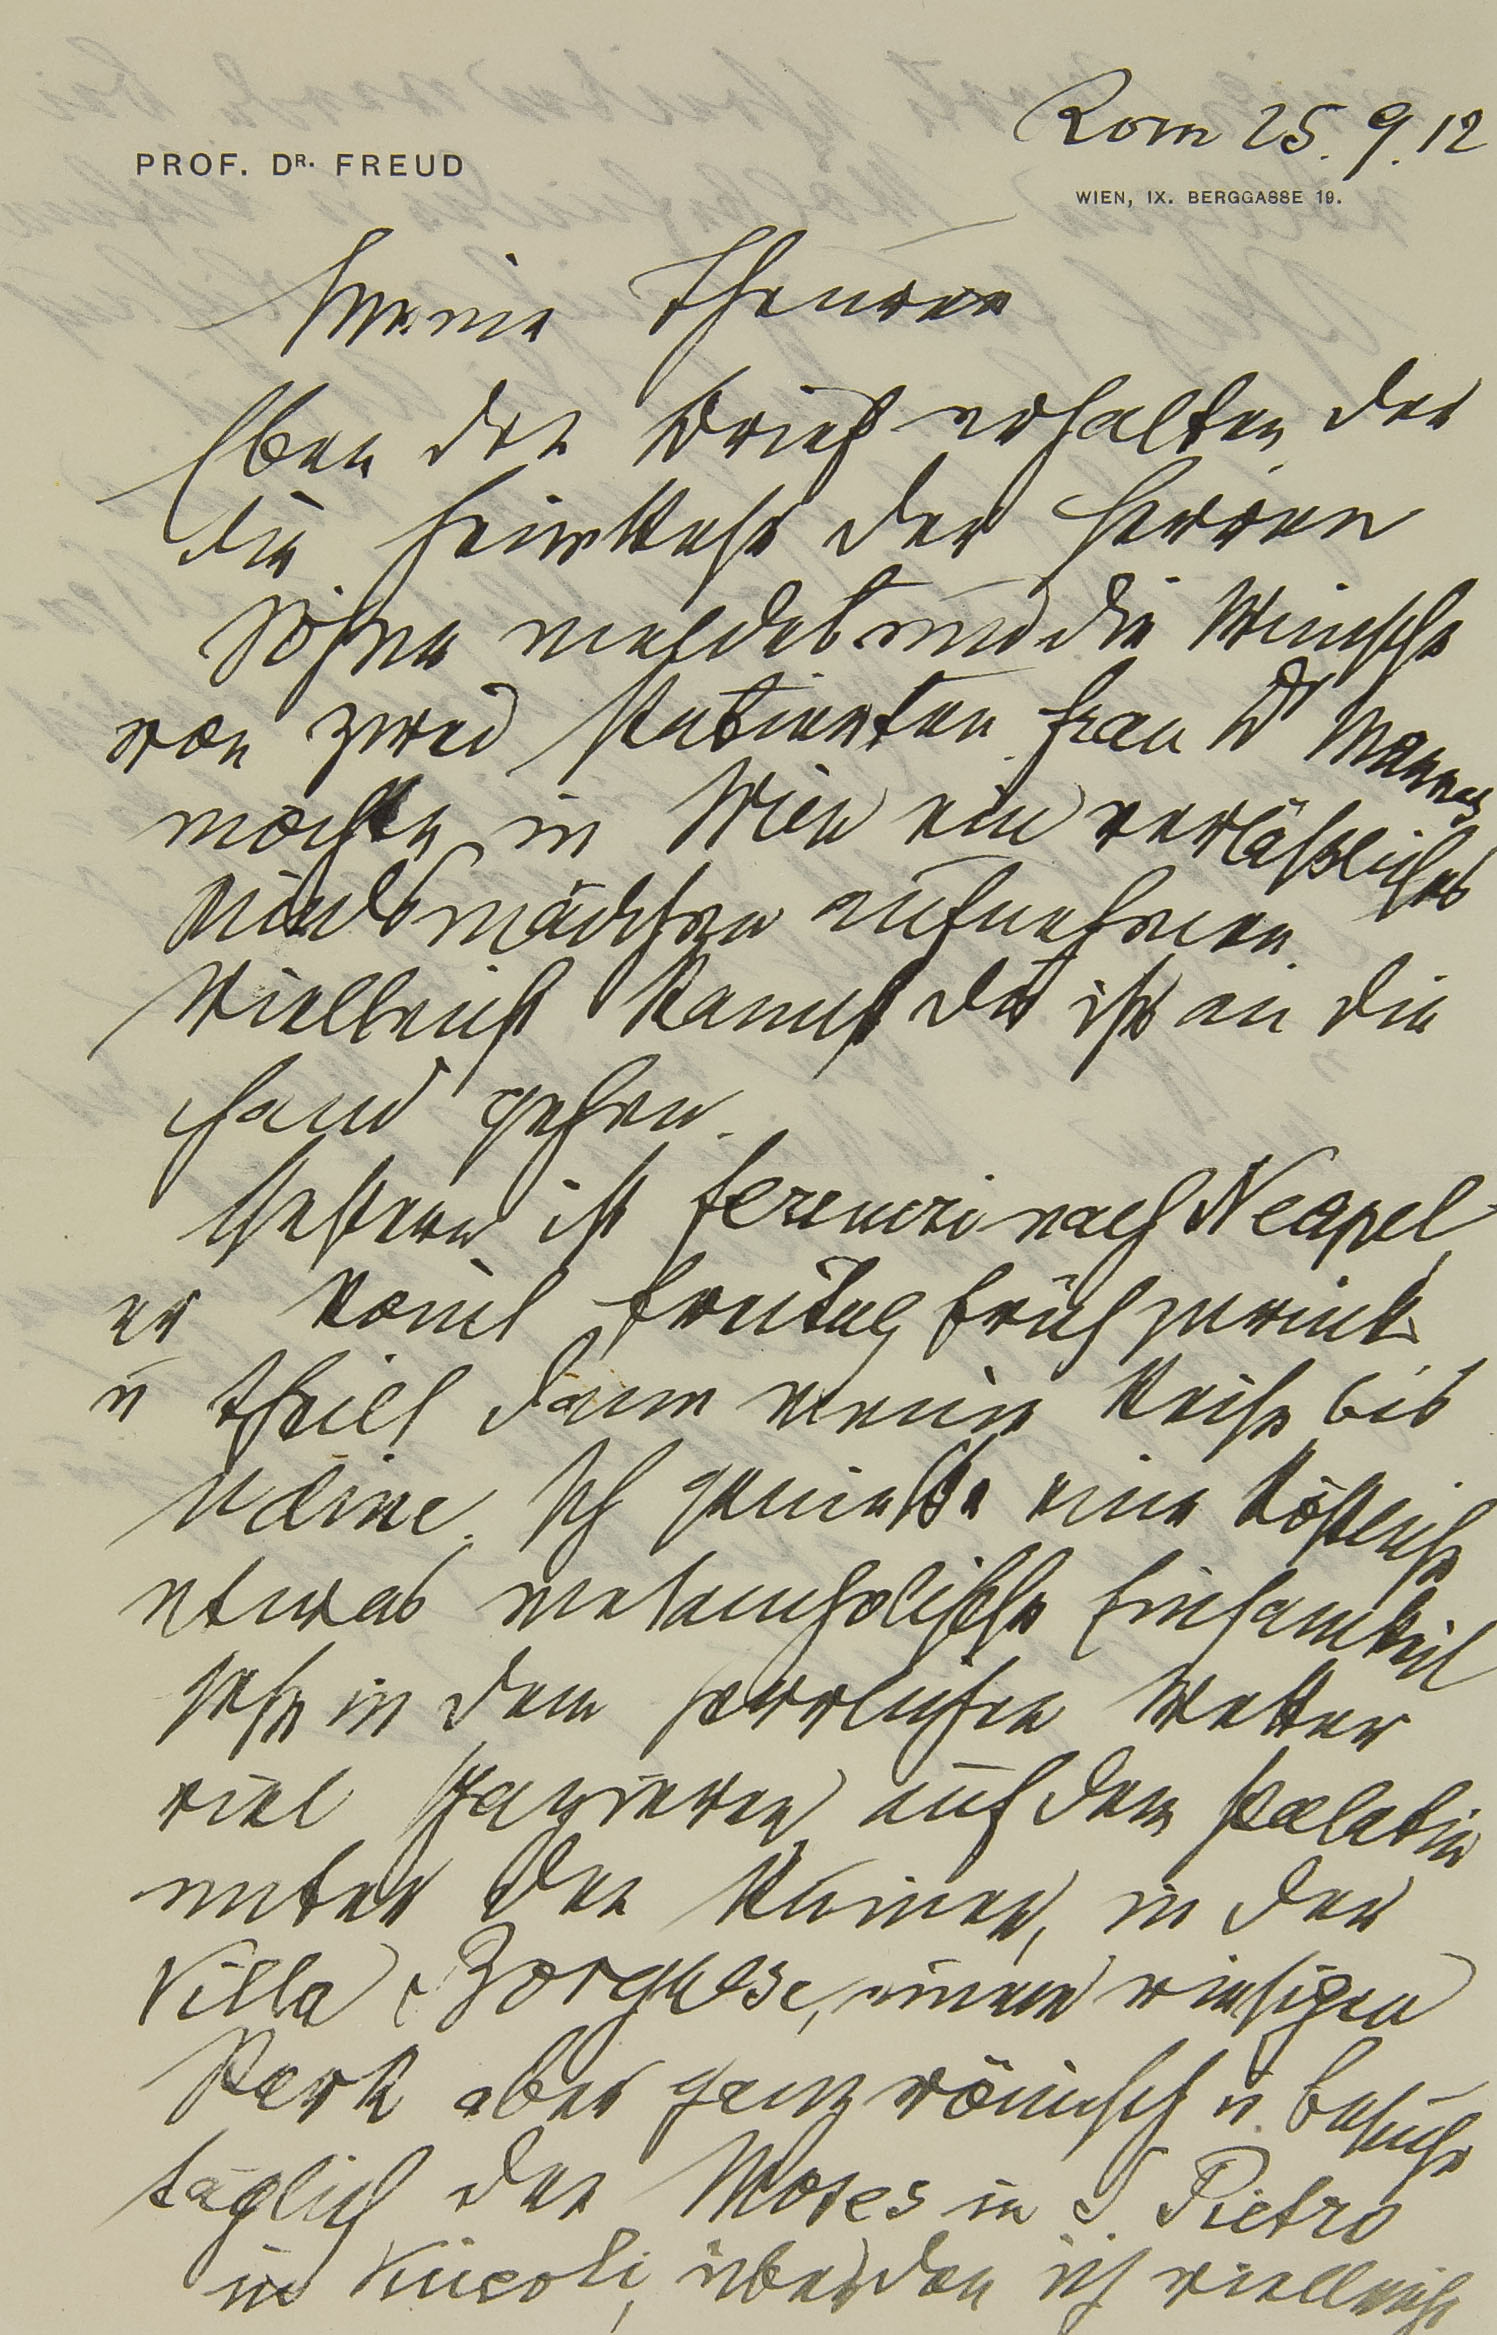 Rom 25.9.12
PROF. DR. FREUD
WIEN, IX. BERGGASSE 19.
Meine Theuren
Eben den Brief erhalten, der
die Heimkehr der Herren
Söhne meldet und die Wünsche
von zwei Patienten. Frau Dr
möchte in Wien ein verläßliches
Kindsmädchen aufnehmen.
Vielleicht kannst du ihr an die
Hand gehen.
Gestern ist Ferenczi nach Neapel,
er komt Freitag früh zurück
u theilt dann meine Reise bis
Udine. Ich genieße eine köstliche
etwas melancholische Einsamkeit
gehe in dem herrlichen Wetter
viel spazieren, auf dem Palatin
unter den Ruinen, in der
Villa Borghese, einem riesigen
Park aber ganz römisch u. besuche
täglich den Moses in S. Pietro
in Vincoli, über den ich vielleicht